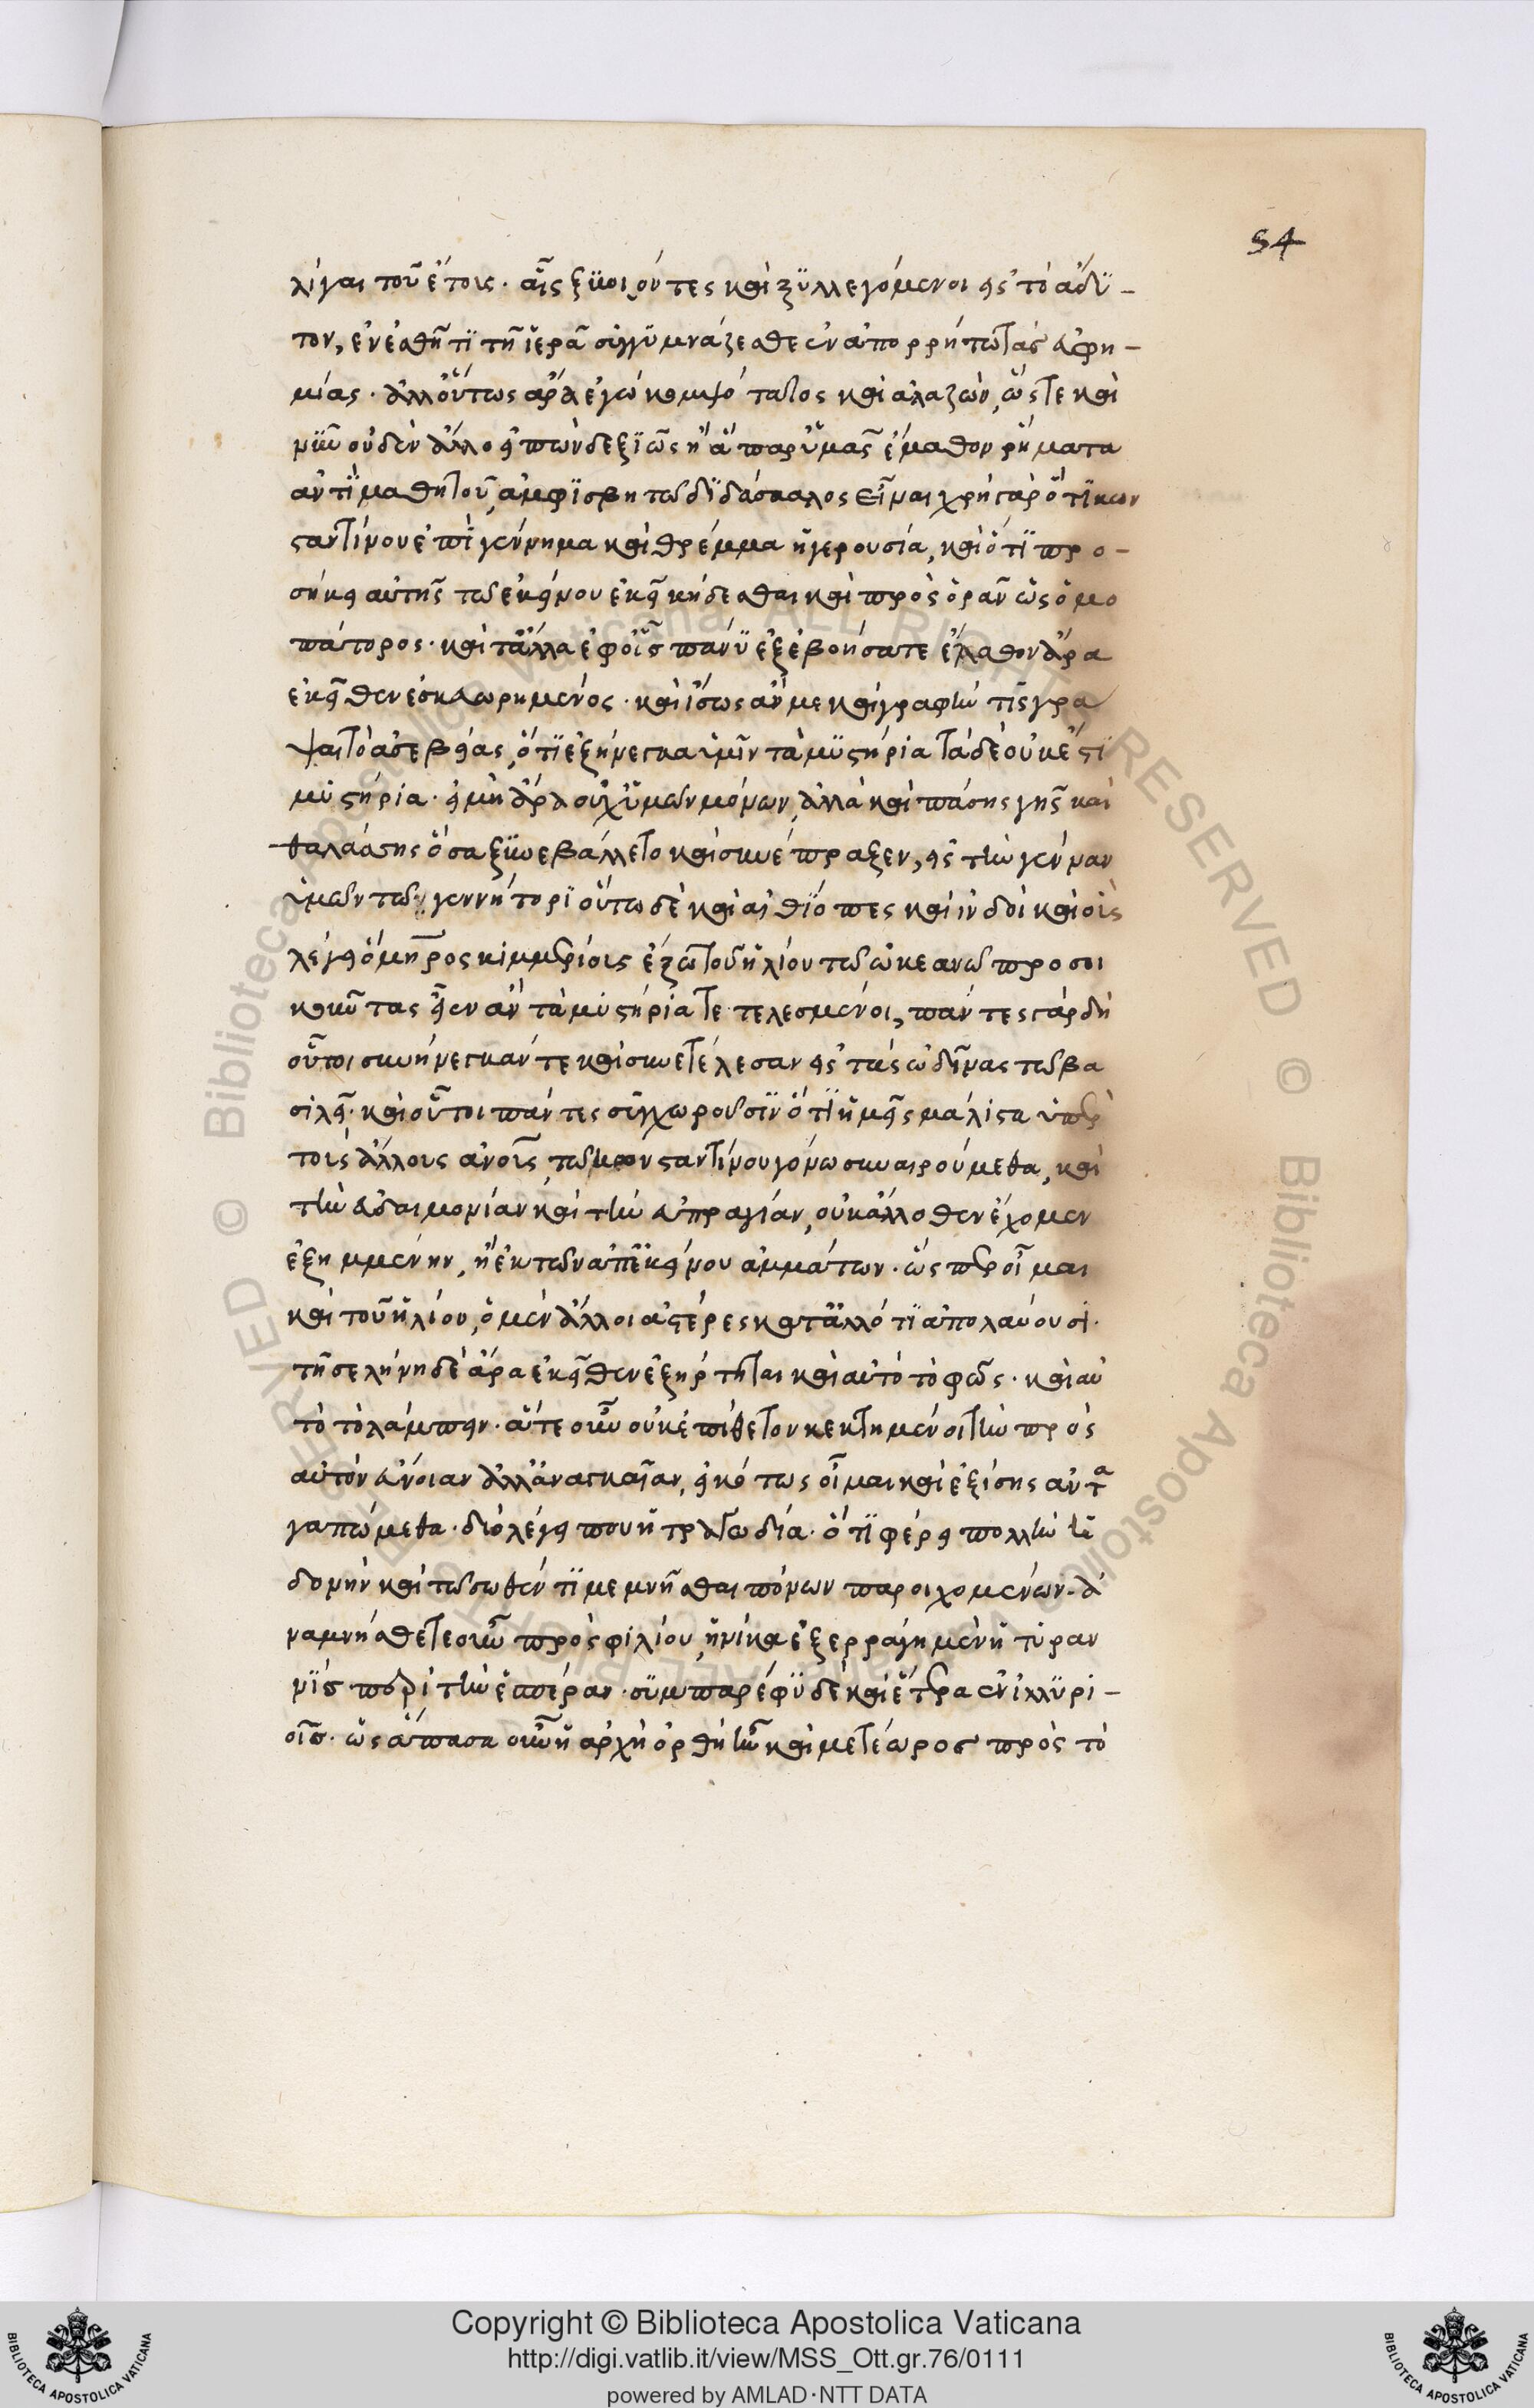 54
λίγαι τοῦ ἔτους. αἷς ξυνιόντες καὶ ξυλλεγόμενοι εἰς τὸ ἄδυ-
τον, ἐν ἐσθῆτι τῇ ἱερᾷ συγγυμνάζεσθε ἐν ἀπορρήτω τὰς εὐφη-
μίας. ἀλλ' οὕτως ἄρα ἐγὼ κομψότατος καὶ ἀλαζών, ὥστε καὶ
νῦν οὐδὲν ἄλλο εἰπὼν δεξιῶς ἢ ἃ παρ' ὑμᾶς ἔμαθον ῥήματα
ἀντὶ μαθητοῦ, ἀμφισβητῶ διδάσκαλος εἶναι χρῆναι ὅτι κων
σταντίνου ἐπιγέννημα καὶ θρέμμα ἡ γερουσία, καὶ ὅτι προ-
σήκει αὐτῆς τῶ ἐκείνου ἐκεῖ κήδεσθαι καὶ προσορᾶν ὡς ὁμο
πάτορος. καὶ τἄλλα ἐφ' οἷς πάνυ ἐξεβοήσατε ἔλαθον ἄρα
ἐκεῖθεν ἐσκευωρημένος. καὶ ἴσως ἄν με καὶ γραφὴν τις γρά
ψαιτο ἀσεβείας, ὅτι ἐξήνεγκα ὑμῖν τὰ μυστήρια τὰ δὲ οὐκ ἔστι
μυστήρια. εἰ μὴ ἄρα οὐχ ὑμῶν μόνων, ἀλλὰ καὶ πάσης γῆς καὶ
θαλάσσης ὅσα ξυνεβάλλετο καὶ συνέπραξεν, εἰς τὴν γένναν
ὑμῶν τῶ γεννήτορι οὕτω δὲ καὶ αἰθίοπες καὶ ἰνδοὶ καὶ οἷς
λέγει ὅμηρος κιμμερίοις ἔξω τοῦ ἡλίου τῶ ὠκεανῶ προσοι
κοῦντας εἶεν ἂν τὰ μυστήρια τετελεσμένοι, πάντες γὰρ δὴ
οὗτοι συνήνεγκάν τε καὶ συνετέλεσαν εἰς τὰς ὠδῖνας τῶ βα
σιλεῖ. καὶ οὗτοι πάντες συγχωροῦσιν ὅτι ἡμεῖς μάλιστα ὑπὲρ
τοὺς ἄλλους ἀνοις τῶ κωνσταντίνου γόνω συναιρούμεθα, καὶ
τὴν εὐδαιμονίαν καὶ τὴν εὐπραγίαν, οὐκ ἄλλοθεν ἔχομεν
ἐξημμένην, ἢ ἐκ τῶν ἀπ' ἐκείνου ἁμμάτων. ὥσπερ οἶμαι
καὶ τοῦ ἡλίου, οἱ μὲν ἄλλοι ἀστέρες κατ' ἄλλό τι ἀπολαύουσι.
τῇ σελήνῃ δὲ ἄρα ἐκεῖθεν ἐξήρτηται καὶ αὐτὸ τὸ φῶς. καὶ αὐ
τὸ τὸ λάμπειν. ἅτε οὖν οὐκ ἐπίθετον κεκτημένοι τὴν πρὸς
αὐτὸν εὔνοιαν ἀλλ' ἀναγκαίαν, εἰκότως οἶμαι καὶ ἐξίσης ἀντα
γαπώμεθα. διὸ λέγει που ἡ τραγωδία. ὅτι φέρει πολλὴν ἡ
δονὴν καὶ τῶ σωθέντι μεμνῆσθαι πόνων παροιχομένων. ἀ
ναμνήσθητε οὖν πρὸς φιλίου, ἡνίκα ἐξερράγη μὲν ἡ τυραν
νὶς περὶ τὴν ἑσπέραν. συμπαρέφυ δὲ καὶ ἑτέρα ἐν ἰλλυρι-
οῖς. ὡς ἅπασα οὖν ἡ ἀρχὴ ὀρθὴ ἦν καὶ μετέωρος πρὸς τὸ
Copyright © Biblioteca Apostolica Vaticana
http://digi.vatlib.it/view/MSS_Ott.gr.76/0111
powered by AMLAD·NTT DATA